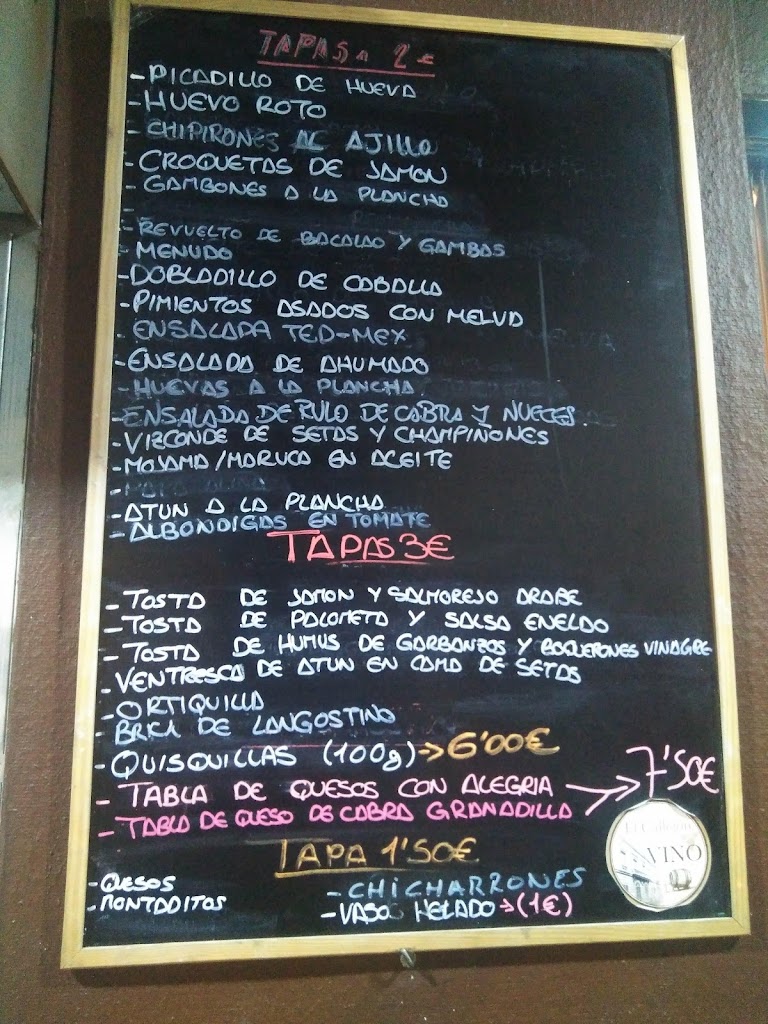 TAPAS A 2€
-PICADILLO DE HUEVA
-HUEVO ROTO
-CHIPIRONES AL AJILLO
-CROQUETAS DE JAMON
-GAMBONES A LA PLANCHA
-
-REVUELTO DE BACALAO Y GAMBAS
-MENUDO
-DOBLADILLO DE CABALLA
-PIMIENTOS ASADOS CON MELVA
-ENSALADA TED-MEX
-ENSALADA DE AHUMADO
-HUEVAS A LA PLANCHA
-ENSALADA DE RULO DE CABRA Y NUECES.
-VIZCONDE DE SETAS Y CHAMPIÑONES
-MOJAMA/MARUCA EN ACEITE
-ATUN A LA PLANCHA
-ALBONDIGAS EN TOMATE
TAPAS 3€
-TOSTA DE JAMON Y SALMOREJO ARABE
-TOSTA DE PALOMETA Y SALSA ENELDO
-TOSTA DE HUMUS DE GARBANZOS Y BOQUERONES VINAGRE
-VENTRESCA DE ATUN EN CAMA DE SETAS
-ORTIQUILLA
-BRICK DE LANGOSTINO
-QUISQUILLAS (100g)→6'00€
-TABLA DE QUESOS CON ALEGRIA → 7'50€
-TABLA DE QUESO DE CABRA GRANADILLA
TAPA 1'50€
-QUESOS -CHICHARRONES
-MONTADITOS -VASOS HELADO→(1€)
El Callejon
VINO